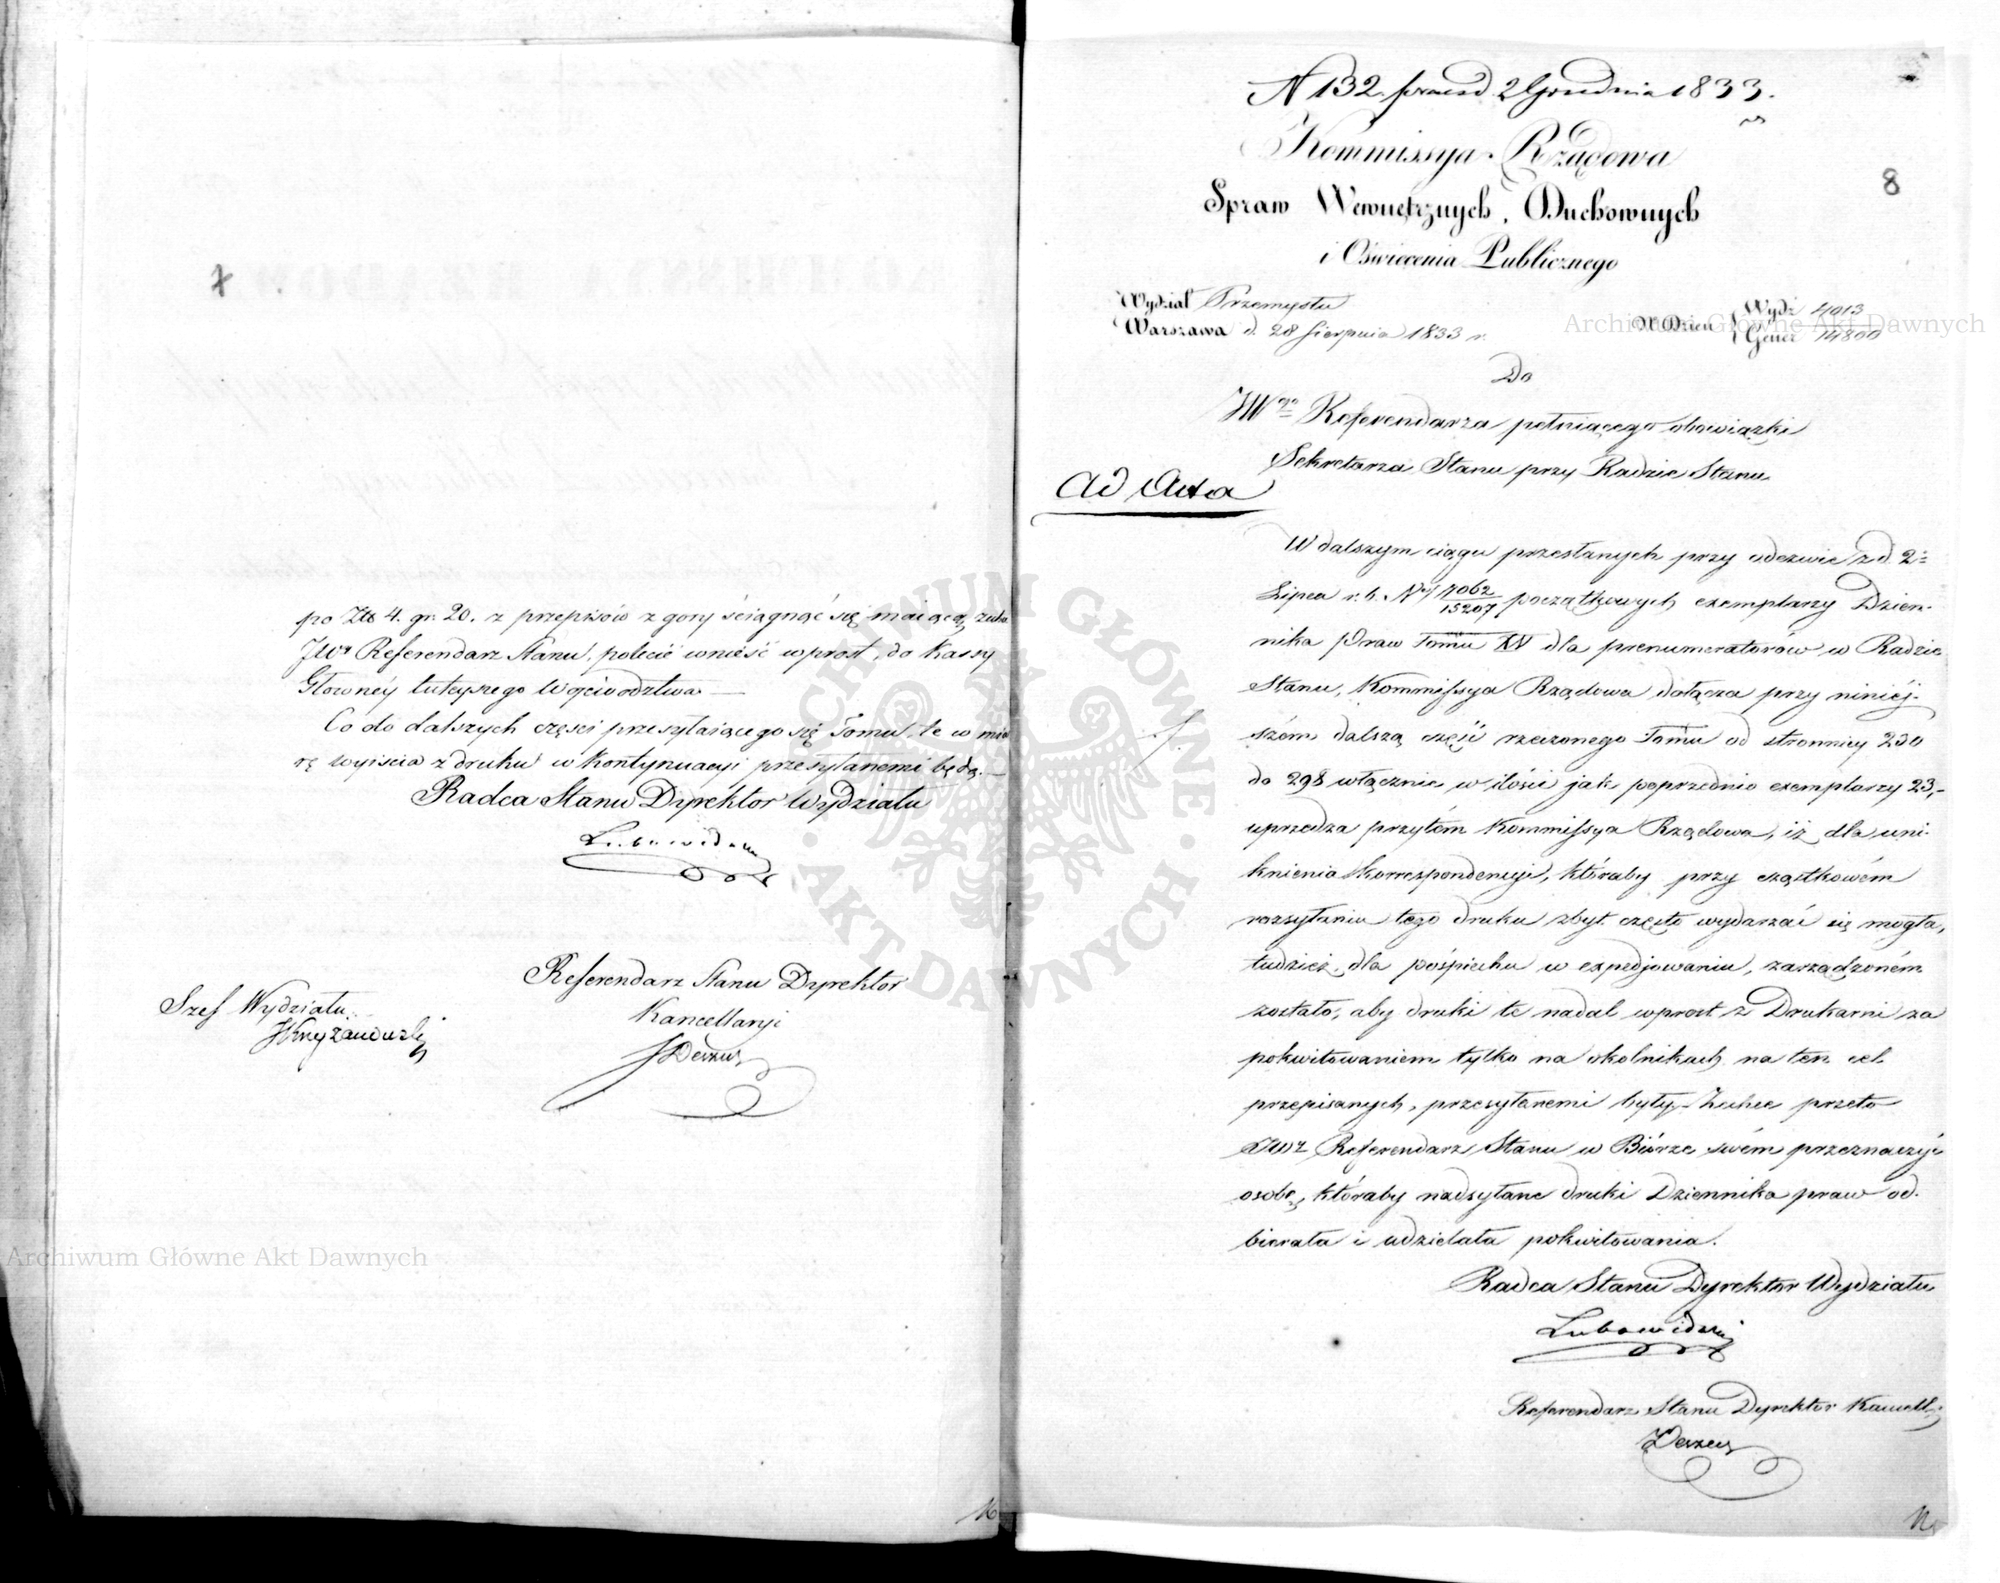 po Zł 4. gr. 20. z przepisów z gory ściągnąć się maiącą, zechce
JWy Referendarz Stanu, polecić wnieść wprost, do Kassy
Głowney tuteyszego Woiewodztwa —
Co do dalszych części przesyłaiącego się Tomu, te w mia
rę wyiścia z druku w kontynuacyi przesyłanemi będą. —
Radca Stanu Dyrektor Wydziału
Lubowidzki
Referendarz Stanu Dyrektor
Kancellaryi
Szef Wydziału
16
N 132. praesd 2 Grudnia 1833.
Kommissya Rządowa
Spraw Wewnętrznych, Duchownych
i Oświecenia Publicznego
8
Wydział Przemysłu
Warszawa d. 28 Sierpnia 1833 r.
N Dzien { Wydz 4013
Gener 14800
Do
JWgo Referendarza pełniącego obowiązki
Sekretarza Stanu przy Radzie Stanu
Ad Acta
W dalszym ciągu przesłanych przy odezwie z d. 2=
Lipca r. b. Nr 7062/15207 początkowych exemplarzy Dzien-
nika Praw Tomu XV dla prenumeratorów w Radzie
Stanu, Kommissya Rządowa dołącza przy niniéj-
szém dalszą część rzeczonego Tomu od stronnicy 230
do 298 włącznie w ilości jak poprzednio exemplarzy 23,-
uprzedza przytém Kommissya Rządowa, iż dla uni-
knienia korrespondencyi, któraby przy cząstkowém
rozsyłaniu tego druku zbyt często wydarzać się mogła,
tudzież dla pośpiechu w expedjowaniu, zarządzoném
zostało, aby druki te nadal wprost z Drukarni za
pokwitowaniem tylko na okolnikach na ten cel
przepisanych, przesyłanemi były. Zechce przeto
JWy Referendarz Stanu w Biórze swém przeznaczyć
osobę, któraby nadsyłane druki Dziennika praw od-
bierała i udzielała pokwitowania.
Radca Stanu Dyrektor Wydziału
Lubowidzki
Referendarz Stanu Dyrektor Kancell
Archiwum Główne Akt Dawnych
Archiwum Główne Akt Dawnych
ARCHIWUM GŁÓWNE · AKT DAWNYCH ·